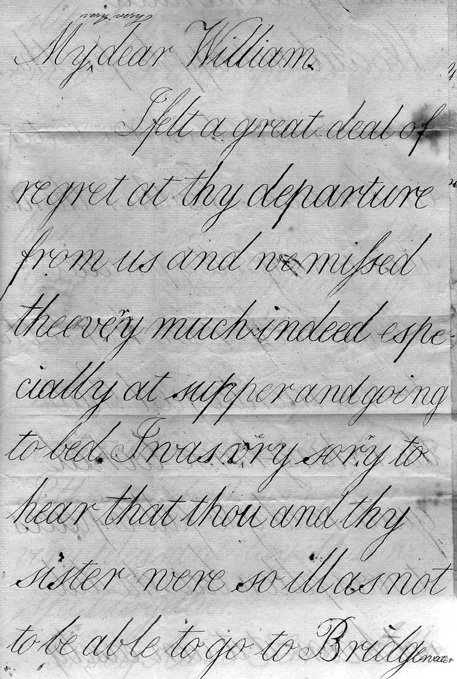 My dear William.
I felt a great deal of
regret at thy departure
from us and we miſsed
thee very much indeed espe-
cially at supper and going
to bed. I was very sorry to
hear that thou and thy
sister were so ill as not
to be able to go to Bridgewater